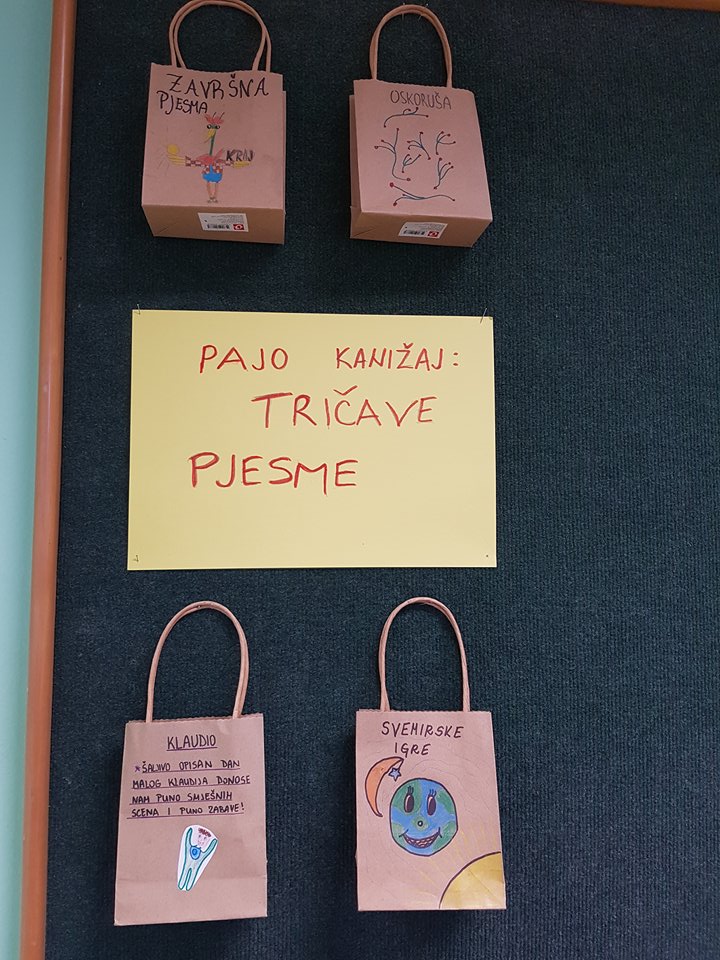 ZAVRŠNA
PJESMA
KRAJ
OSKORUŠA
PAJO KANIŽAJ:
TRIČAVE
PJESME
KLAUDIO
*ŠALJIVO OPISAN DAN
MALOG KLAUDIJA DONOSE
NAM PUNO SMJEŠNIH
SCENA I PUNO ZABAVE!
SVEMIRSKE
IGRE